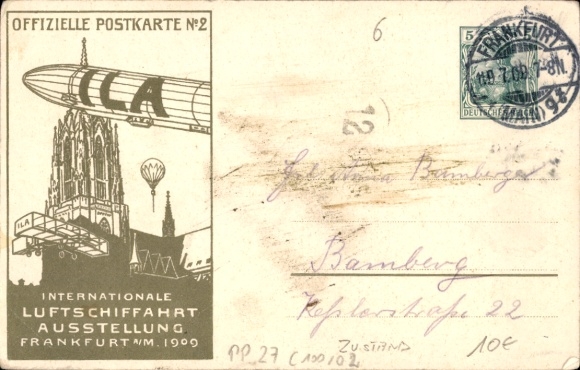 OFFIZIELLE POSTKARTE Nº2
ILA
ILA
INTERNATIONALE
LUFTSCHIFFAHRT
AUSSTELLUNG
FRANKFURT A/M. 1909
6
5
DEUTSCHES REICH
FRANKFURT
7-8N.
(MAIN) 9
12
Bamberger
Bamberg
Keßlerstraße 22
PP 27 C 100/02
ZUSTAND
10€